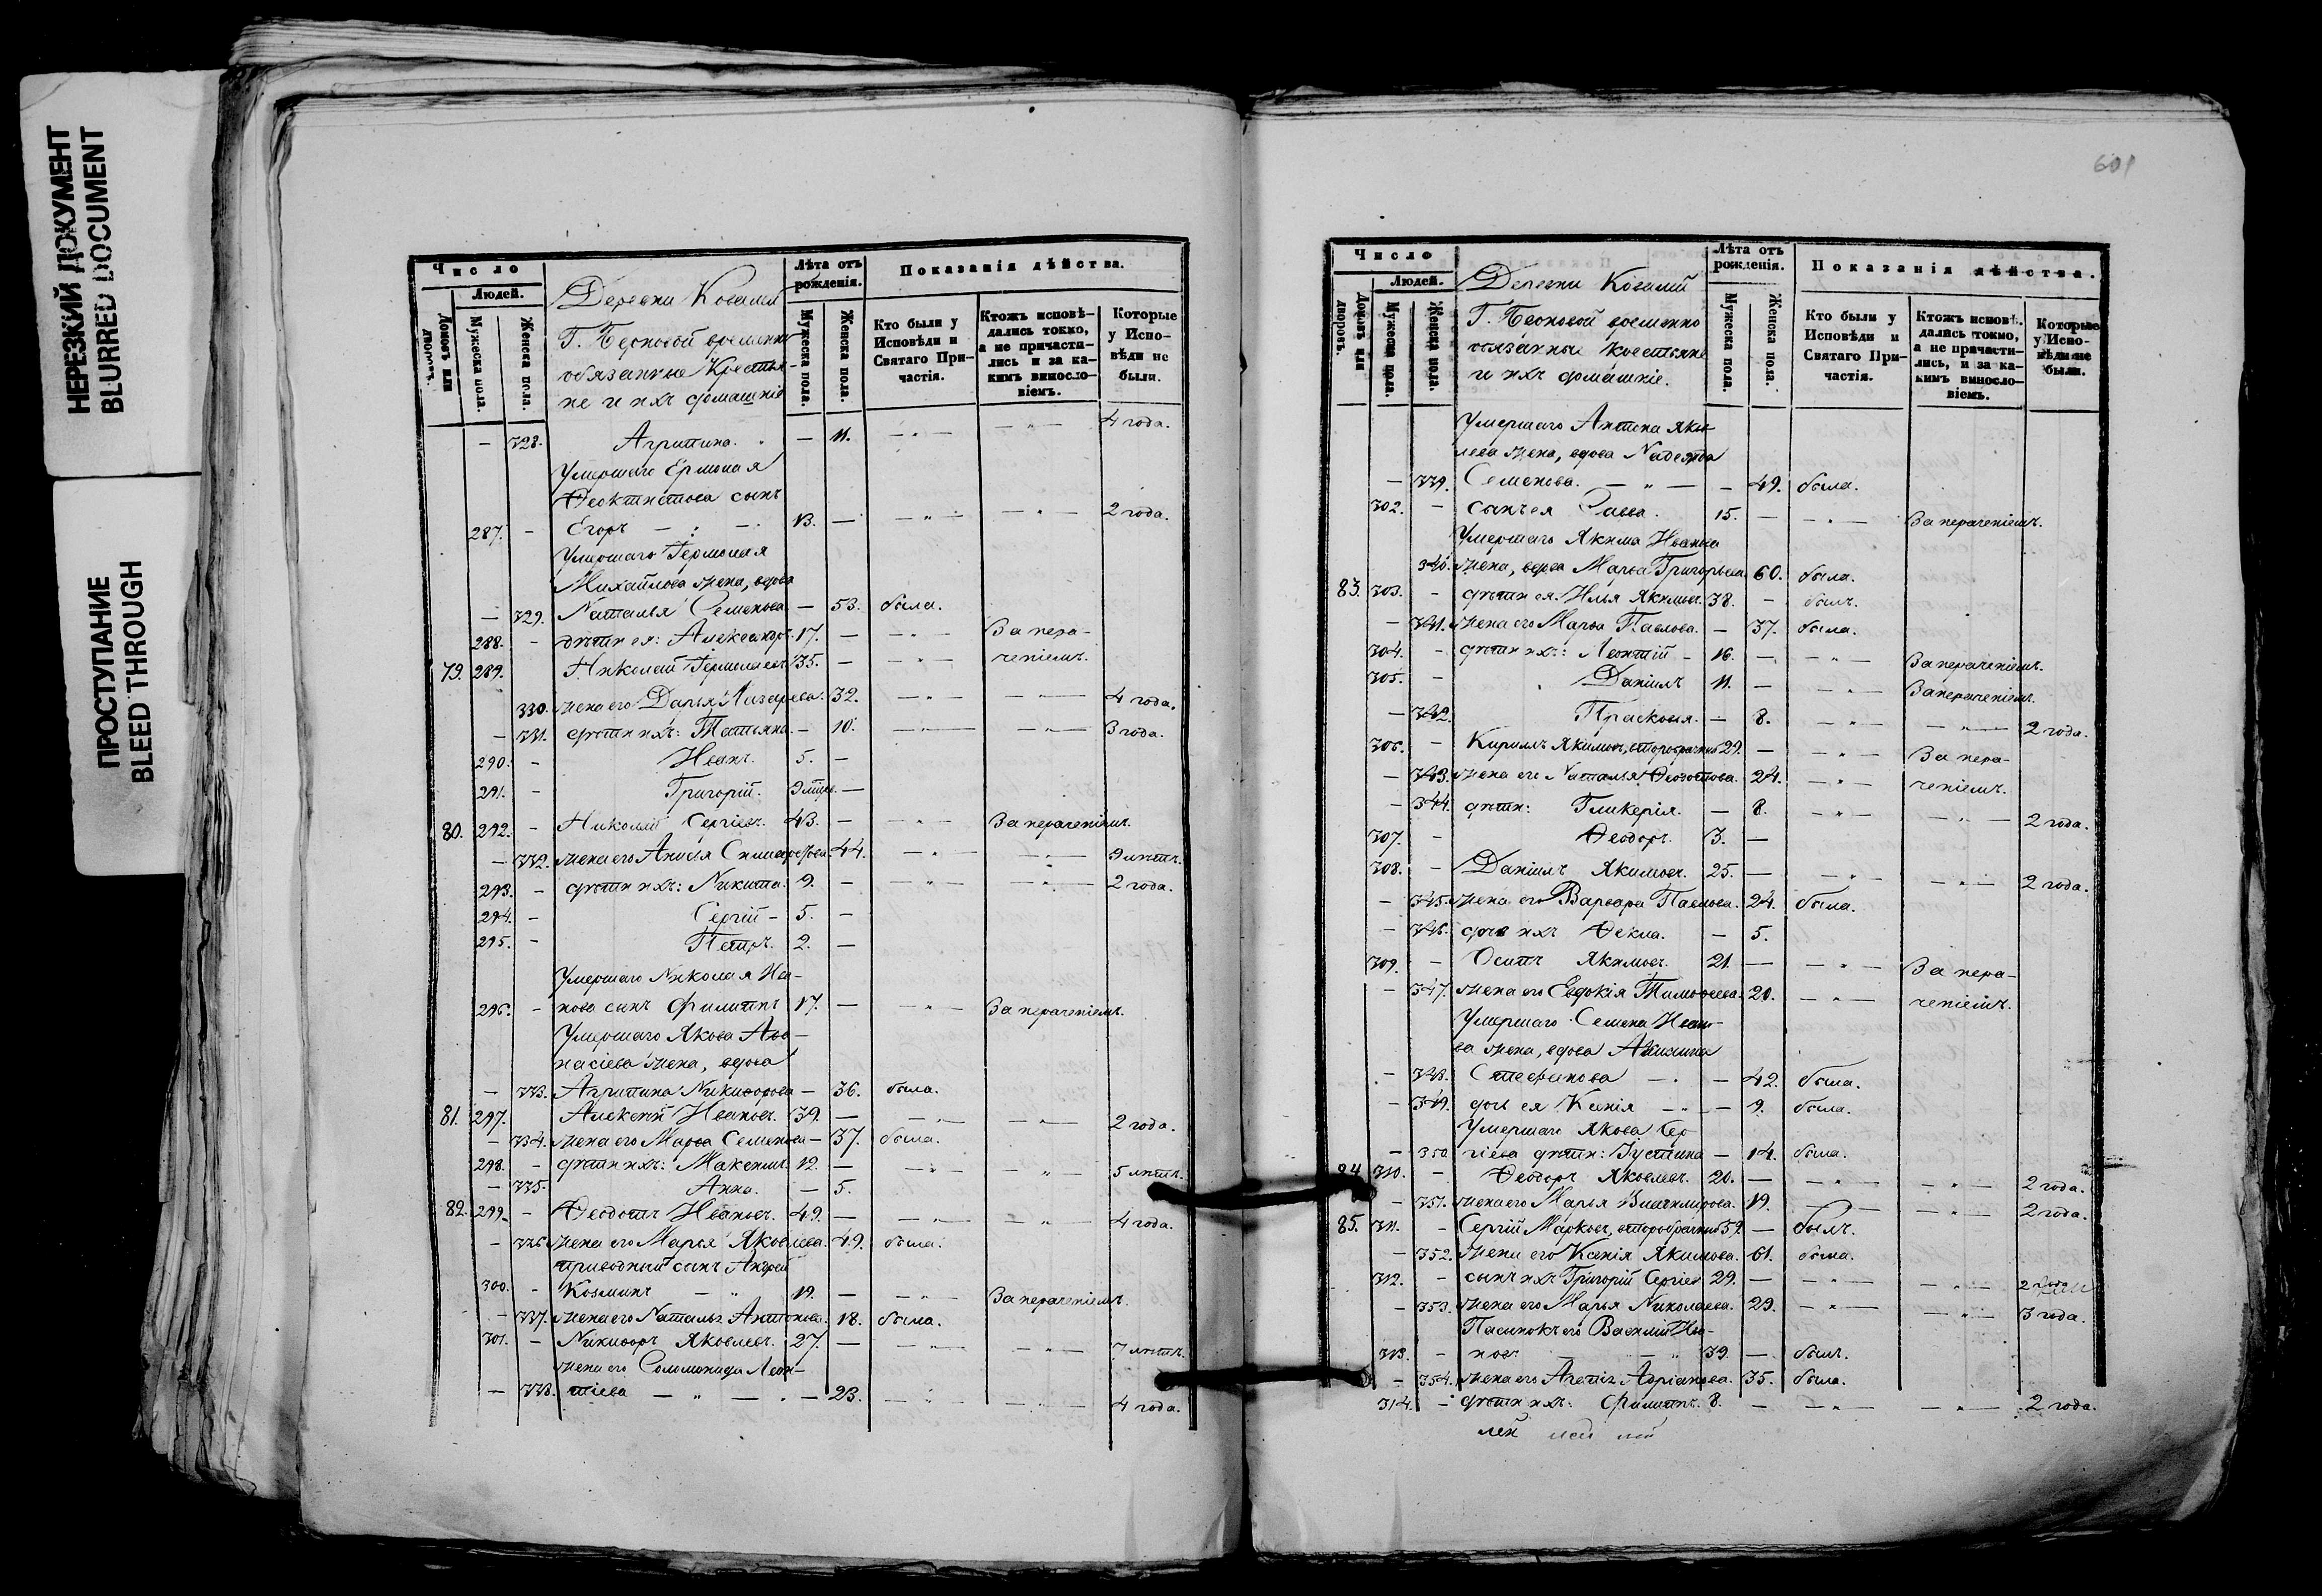 НЕРЕЗКИЙ ДОКУМЕНТ
BLURRED DOCUMENT
ПРОСТУПАНИЕ
BLEED THROUGH
Число
Людей.
Домовъ или дворовъ.
Мужеска пола.
Женска пола.
Деревни
Г. временно
обязанные Крестья-
не и ихъ домашніе
Лѣта отъ рожденія.
Мужеска пола.
Женска пола.
Показанія дѣйства.
Кто были у Исповѣди и Святаго При-частія.
Ктожъ исповѣ-дались токмо, а не причасти-лись и за ка-кимъ виносло-віемъ.
Которые у Испо-вѣди не были.
— 328. Агрипина. — 11. — „ — — „ — 4 года.
Умершаго Ермолая
Ѳеоктистова сынъ
287. — Егоръ — „ — 13. — — „ — — „ — 2 года.
Умершаго Гермолая
Михайлова жена, вдова
— 329. Наталья Семенова — 53. была.
288. — дѣти ея: Александръ 17. — — „ — За нера-
79. 289. Николай Гермолаевъ 35. — — „ — ченіемъ.
330. жена его Дарья Лазарева. 32. — „ — — „ — 4 года.
— 331. дѣти ихъ: Татьяна. — 10. — „ — — „ — 3 года.
290. — Иванъ. 5. —
291. — Григорій. 9 мѣс. —
80. 292. — Николай Сергіевъ. 43. — — „ — За нераченіемъ.
— 332. жена его Анисія 44. — „ — — „ — 9 лѣтъ.
293. — дѣти ихъ: Никита. 9. — — „ — — „ — 2 года.
294. — Сергій — 5. —
295. — Петръ. 2. —
Умершаго Николая Ива-
296. — нова сынъ Филиппъ 17. — — „ — За нераченіемъ.
Умершаго Якова Аѳа-
насіева жена, вдова
— 333. Агрипина Никифорова — 36. была.
81. 297. Алексѣй Ивановъ. 39. — — „ — — „ — 2 года.
— 334. жена его Марѳа Семенова — 37. была.
298. — дѣти ихъ: Максимъ. 12. — — „ — „ 5 лѣтъ.
— 335. Анна. — 5.
82. 299. — Ѳедотъ Ивановъ. 49. — — „ — — „ — 4 года.
— 336. жена его Марья Яковлева. 49. была.
приводный сынъ Андрей
300. — Козминъ — „ 19. — — „ — За нераченіемъ.
— 337. жена его Наталья Антонова. 18. была.
301. — Никифоръ Яковлевъ. 27. — — „ — — „ — 7 лѣтъ.
жена его Соломонида Леон-
— 338. тіева — „ — — 23. — „ — — „ — 4 года.
601
Число
Людей.
Домовъ или дворовъ.
Мужеска пола.
Женска пола.
Деревни
Г. временно
обязанные крестьяне
и ихъ домашніе.
Лѣта отъ рожденія.
Мужеска пола.
Женска пола.
Показанія дѣйства.
Кто были у Исповѣди и Святаго При-частія.
Ктожъ исповѣ-дались токмо, а не причасти-лись, и за ка-кимъ виносло-віемъ.
Которые у Испо-вѣди не были.
Умершаго Антипа Яков-
лева жена, вдова Надежда
— 339. Семенова. — „ — — 49. была.
302. — сынъ ея Савва. 15. — — „ — За нераченіемъ.
Умершаго Якима Иванова
340. жена, вдова Марѳа Григорьева. 60. была.
83. 303. — дѣти ея: Илья Якимовъ. 38. — былъ.
— 341. жена его Марѳа Павлова. — 37. была.
304. — дѣти ихъ: Леонтій — 16. — — „ — За нераченіемъ.
305. — Даніилъ 11. — — „ — За нераченіемъ.
— 342. Прасковья. — 8. — „ — — „ — 2 года.
306. — Кириллъ Якимовъ, второбрачный 29. — — „ — За нера-
— 343. жена его Наталья Ѳеодотова. 24. — „ — ченіемъ.
— 344. дѣти: Гликерія. — 8. — „ — — „ — 2 года.
307. — Ѳеодоръ. 3. —
308. — Даніилъ Якимовъ. 25. — — „ — — „ — 2 года.
— 345. жена его Варвара Павлова. 24. была.
— 346. дочь ихъ Ѳекла. — 5.
309. — Осипъ Якимовъ. 21. — — „ — За нера-
— 347. жена его Евдокія Тимоѳеева. 20. — „ — ченіемъ.
Умершаго Семена Ивано-
ва жена, вдова Акилина
— 348. Стефанова — „ — 42. была.
— 349. дочь ея Ксенія — „ — 9. была.
Умершаго Якова Сер-
— 350. гіева дѣти: Іустина — 14. была.
84. 310. — Ѳеодоръ Яковлевъ. 20. — — „ — — „ — 2 года.
— 351. жена его Марья 19. — „ — — „ — 2 года.
85. 311. — Сергій Марковъ, второбрачный 59. — былъ.
— 352. жена его Ксенія Якимова. 61. была.
312. — сынъ ихъ Григорій Сергіев 29. — — „ — — „ — 2 года
— 353. жена его Марья Николаева. 29. — „ — — „ — 3 года.
Пасынокъ его Василій Ива-
313. — новъ — „ 39. — былъ.
— 354. жена его Агапія Адріанова. 35. была.
314. — дѣти ихъ: Филиппъ. 8. — — „ — — „ — 2 года.